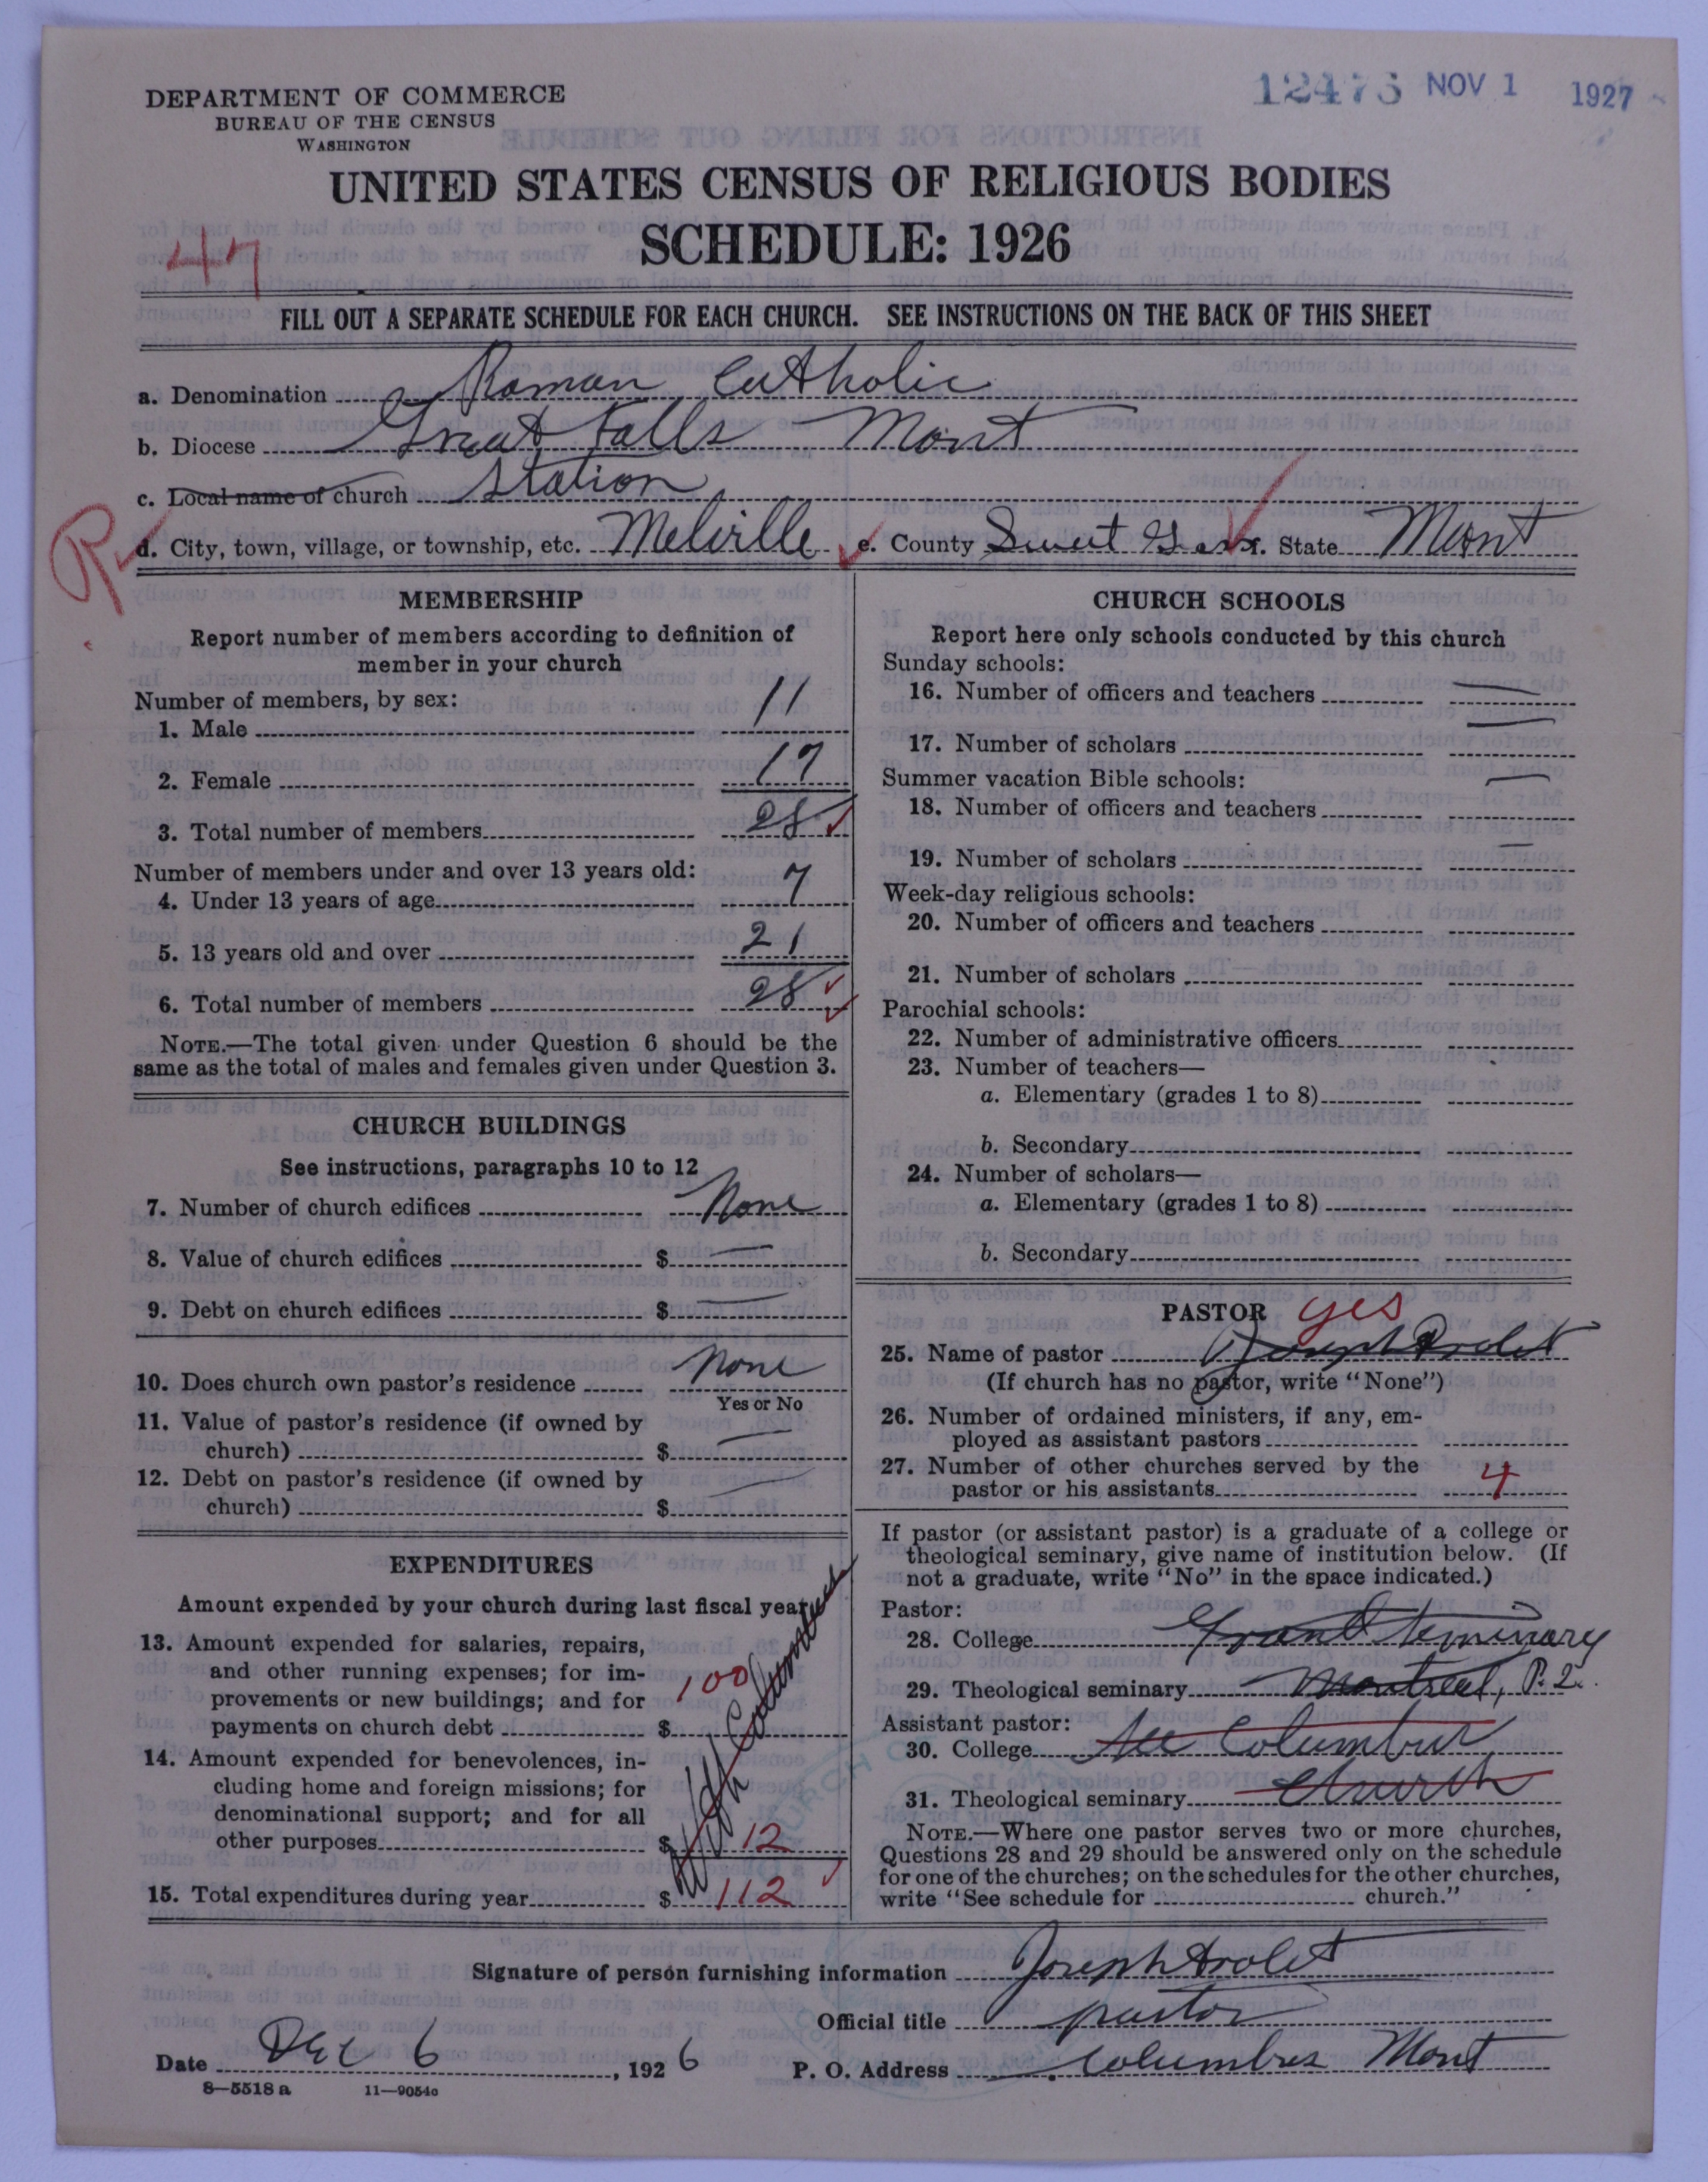 DEPARTMENT OF COMMERCE
BUREAU OF THE CENSUS
WASHINGTON
12475 NOV 1 1927
UNITED STATES CENSUS OF RELIGIOUS BODIES
SCHEDULE: 1926
47
FILL OUT A SEPARATE SCHEDULE FOR EACH CHURCH. SEE INSTRUCTIONS ON THE BACK OF THIS SHEET
a. Denomination Roman Catholic
b. Diocese Great Falls Mont
c. Local name of church Station
R
d. City, town, village, or township, etc. Melville e. County Sweet Grass f. State Mont
MEMBERSHIP
Report number of members according to definition of
member in your church
Number of members, by sex:
1. Male 11
2. Female 17
3. Total number of members 28
Number of members under and over 13 years old:
4. Under 13 years of age 7
5. 13 years old and over 21
6. Total number of members 28
NOTE.—The total given under Question 6 should be the
same as the total of males and females given under Question 3.
CHURCH BUILDINGS
See instructions, paragraphs 10 to 12
7. Number of church edifices None
8. Value of church edifices $ —
9. Debt on church edifices $ —
10. Does church own pastor's residence None
Yes or No
11. Value of pastor's residence (if owned by
church) $ —
12. Debt on pastor's residence (if owned by
church) $ —
EXPENDITURES
Amount expended by your church during last fiscal year
13. Amount expended for salaries, repairs,
and other running expenses; for im-
provements or new buildings; and for
payments on church debt $ 100
14. Amount expended for benevolences, in-
cluding home and foreign missions; for
denominational support; and for all
other purposes $ 12
15. Total expenditures during year $ 112
With Columbus
CHURCH SCHOOLS
Report here only schools conducted by this church
Sunday schools:
16. Number of officers and teachers —
17. Number of scholars —
Summer vacation Bible schools:
18. Number of officers and teachers —
19. Number of scholars —
Week-day religious schools:
20. Number of officers and teachers
21. Number of scholars
Parochial schools:
22. Number of administrative officers
23. Number of teachers—
a. Elementary (grades 1 to 8)
b. Secondary
24. Number of scholars—
a. Elementary (grades 1 to 8)
b. Secondary
PASTOR yes
25. Name of pastor Joseph Drolet
(If church has no pastor, write "None")
26. Number of ordained ministers, if any, em-
ployed as assistant pastors
27. Number of other churches served by the
pastor or his assistants 4
If pastor (or assistant pastor) is a graduate of a college or
theological seminary, give name of institution below. (If
not a graduate, write "No" in the space indicated.)
Pastor:
28. College Grand Seminary
29. Theological seminary Montreal, P. Q.
Assistant pastor:
30. College See Columbus
31. Theological seminary Church
NOTE.—Where one pastor serves two or more churches,
Questions 28 and 29 should be answered only on the schedule
for one of the churches; on the schedules for the other churches,
write "See schedule for church."
Signature of person furnishing information Joseph Drolet
Official title pastor
Date Dec 6, 1926 P. O. Address Columbus Mont
8—5518 a 11—9054a